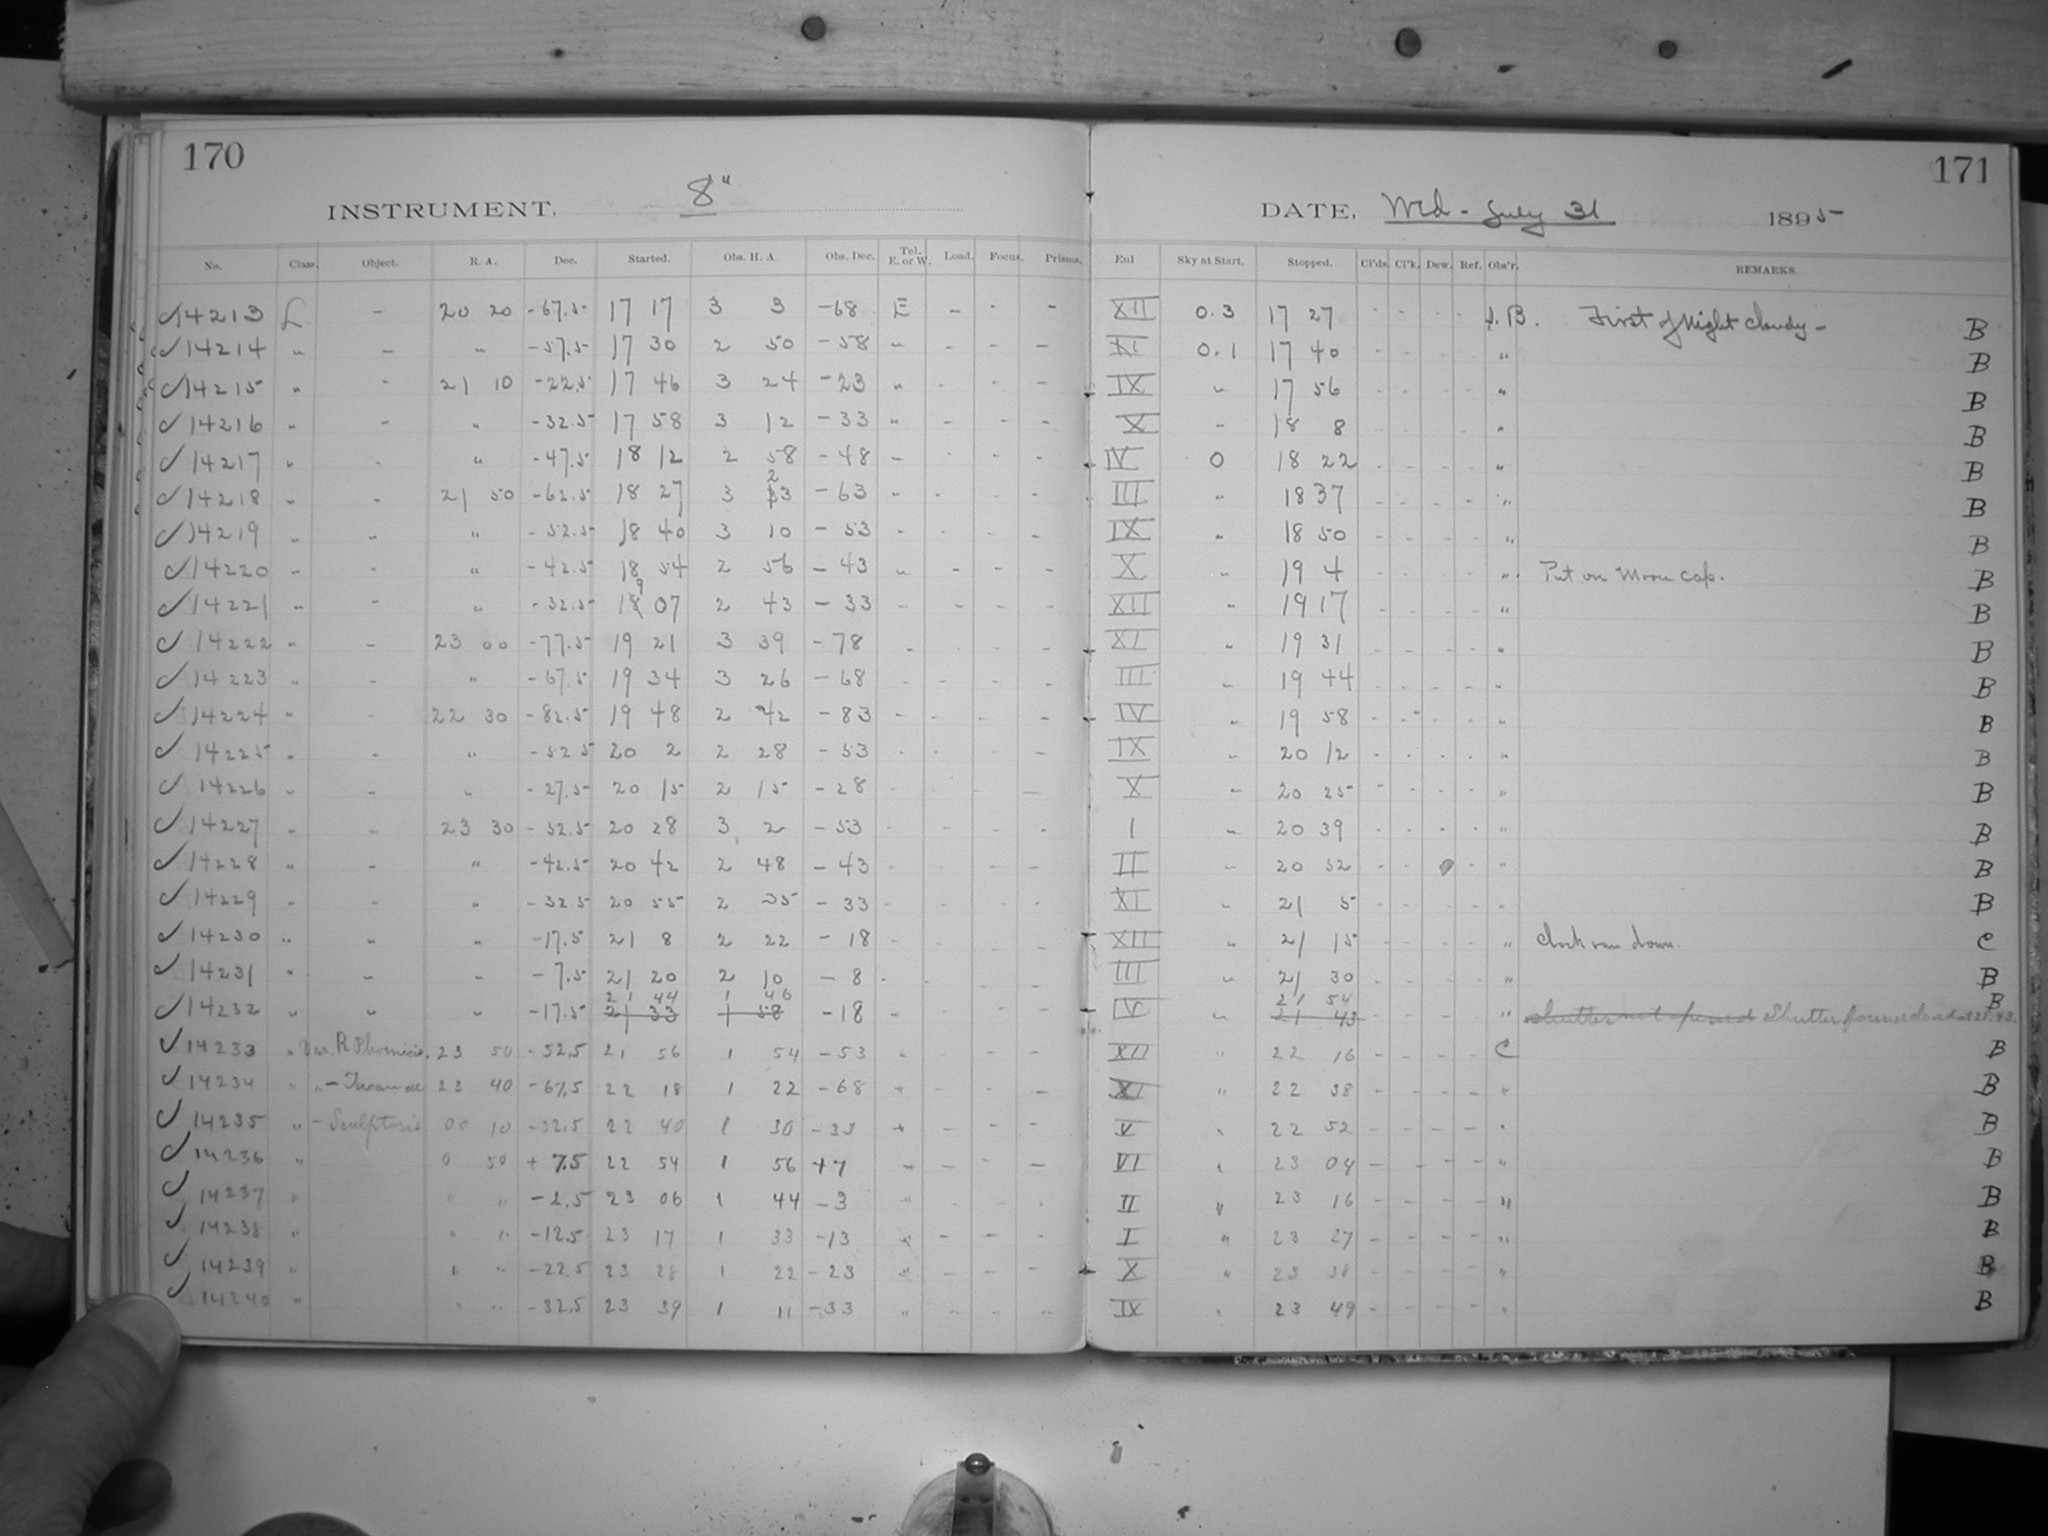 170
INSTRUMENT, 8"
171
DATE, Wed - July 31 1895
No. Class. Object. R. A. Dec. Started. Obs. H. A. Obs. Dec. Tel. E. or W. Load. Focus. Prisms. Enl Sky at Start. Stopped. Cl'ds. Cl'k. Dew. Ref. Obs'r. REMARKS.
✓14213 L - 20 20 -67.5 17 17 3 3 -68 E - - - XII 0.3 17 27 - - - - J.B. First of night cloudy - B
✓14214 " - " -57.5 17 30 2 50 -58 " - - - XI 0.1 17 40 - - - - " B
✓14215 " - 21 10 -22.5 17 46 3 24 -23 " - - - IX " 17 56 - - - - " B
✓14216 " - " -32.5 17 58 3 12 -33 " - - - X " 18 8 - - - - " B
✓14217 " - " -47.5 18 12 2 58 -48 " - - - IV 0 18 22 - - - - " B
✓14218 " - 21 50 -62.5 18 27 3 23 -63 " - - - III " 18 37 - - - - " B
✓14219 " - " -52.5 18 40 3 10 -53 " - - - IX " 18 50 - - - - " B
✓14220 " - " -42.5 18 54 2 56 -43 " - - - X " 19 4 - - - - " Put on Moon cap. B
✓14221 " - " -32.5 19 07 2 43 -33 " - - - XII " 19 17 - - - - " B
✓14222 " - 23 00 -77.5 19 21 3 39 -78 " - - - XI " 19 31 - - - - " B
✓14223 " - " -67.5 19 34 3 26 -68 - - - - III " 19 44 - - - - " B
✓14224 " - 22 30 -82.5 19 48 2 42 -83 - - - - IV " 19 58 - - - - " B
✓14225 " - " -52.5 20 2 2 28 -53 - - - - IX " 20 12 - - - - " B
✓14226 " - " -27.5 20 15 2 15 -28 - - - - X " 20 25 - - - - " B
✓14227 " - 23 30 -52.5 20 28 3 2 -53 - - - - I " 20 39 - - - - " B
✓14228 " - " -42.5 20 42 2 48 -43 - - - - II " 20 52 - - - " B
✓14229 " - " -32.5 20 55 2 35 -33 - - - - XI " 21 5 - - - - " B
✓14230 " " " -17.5 21 8 2 22 -18 - - - - XII " 21 15 - - - - " Clock ran down. C
✓14231 " - " -7.5 21 20 2 10 -8 - - - - III " 21 30 - - - - " B
21 44 1 46 21 54
✓14232 " " " -17.5 21 33 1 58 -18 " - - - IV " 21 43 - - - - " Shutter not opened Shutter found closed at 21 43. B
✓14233 " Var. R Phoenicis. 23 50 -52.5 21 56 1 54 -53 " - - - XII " 22 16 - - - - C B
✓14234 " " - Tucanae 23 40 -67.5 22 18 1 22 -68 " - - - XI " 22 38 - - - - " B
✓14235 " - Sculptoris 00 10 -32.5 22 40 1 30 -33 " - - - V " 22 52 - - - - " B
✓14236 " 0 50 +7.5 22 54 1 56 +7 " - - - VI " 23 04 - - - - " B
✓14237 " " " -2.5 23 06 1 44 -3 " - - - II " 23 16 - - - - " B
✓14238 " " " -12.5 23 17 1 33 -13 " - - - I " 23 27 - - - - " B
✓14239 " " " -22.5 23 28 1 22 -23 " - - - X " 23 38 - - - - " B
✓14240 " " " -32.5 23 39 1 11 -33 " - - - IX " 23 49 - - - - " B